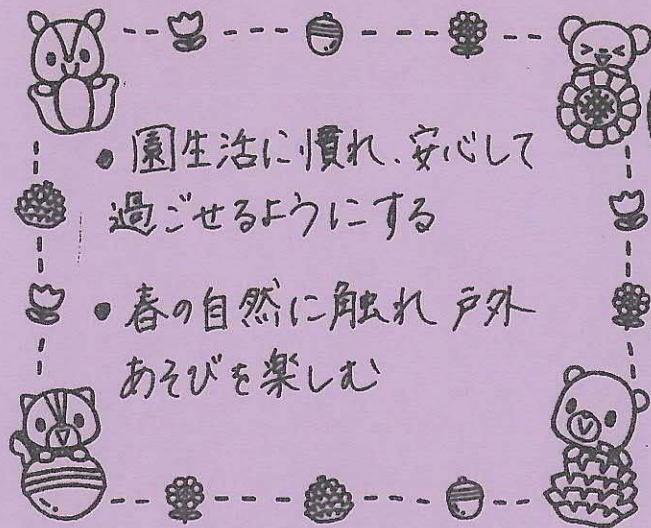 • 園生活に慣れ、安心して
過ごせるようにする
• 春の自然に触れ 戸外
あそびを楽しむ